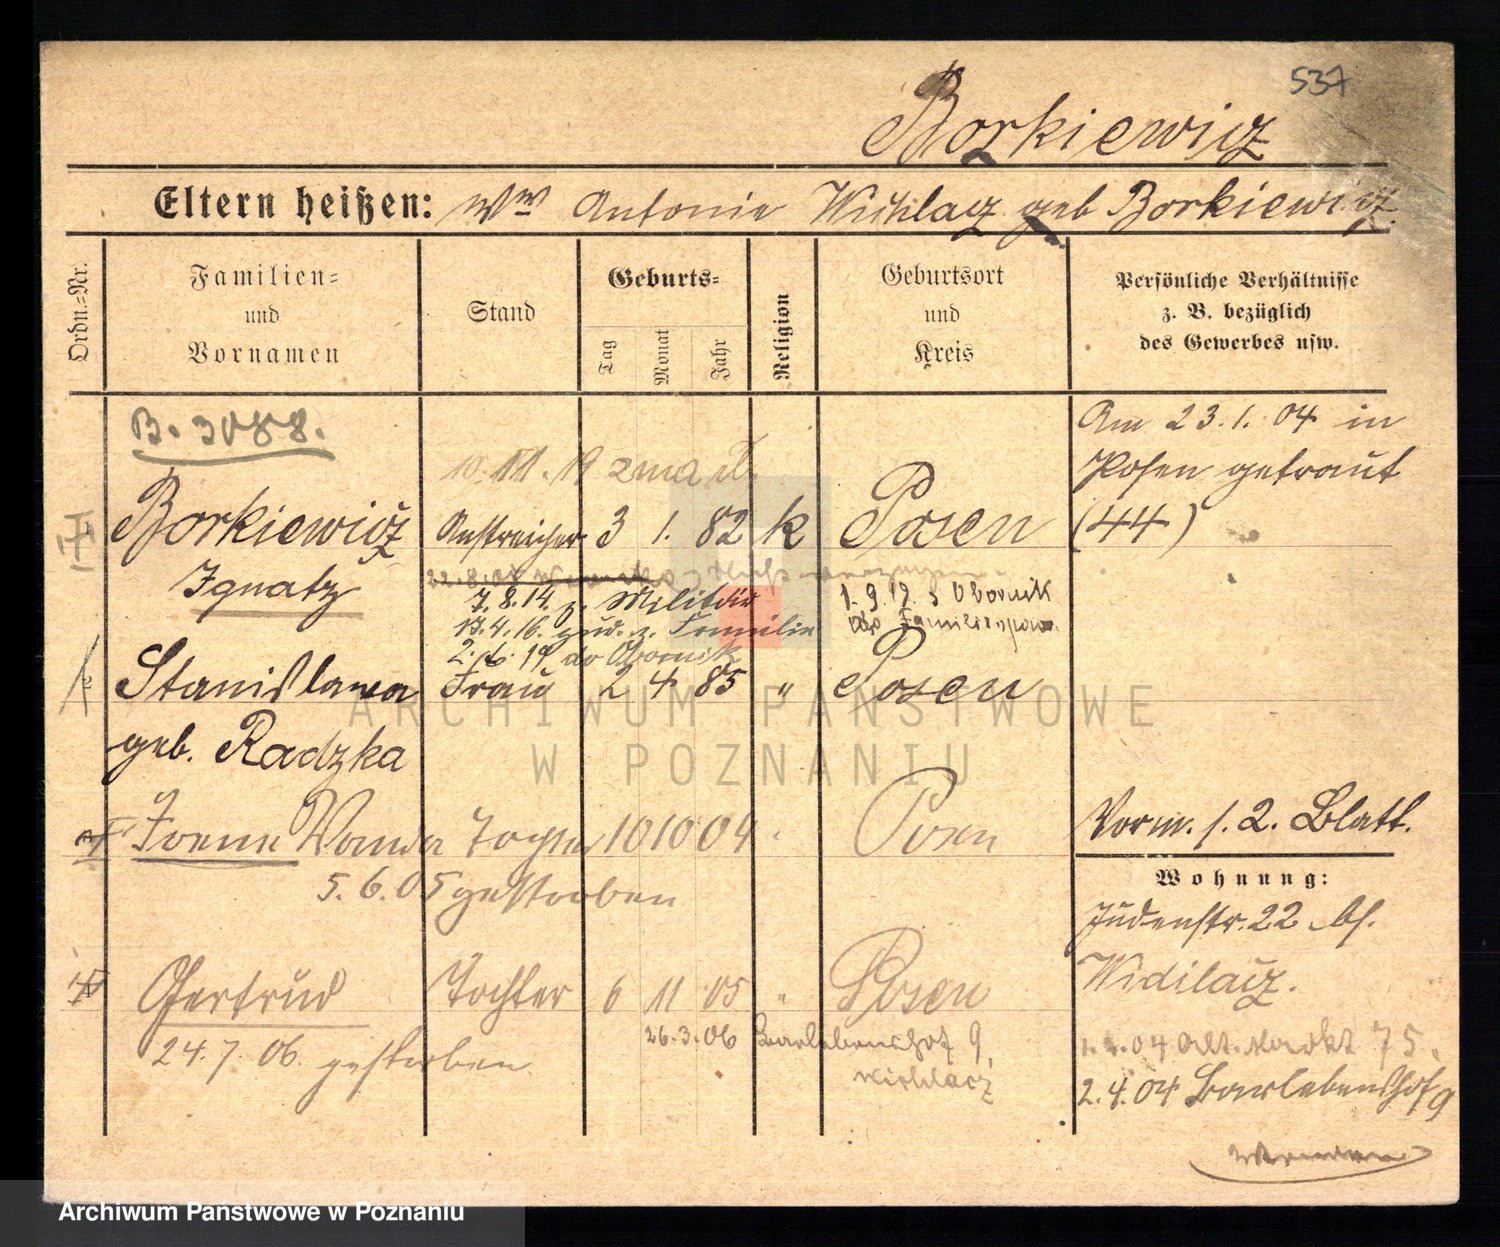 537
Borkiewicz
Eltern heißen: Ww Antonie Wichlacz geb Borkiewicz
Ordn.=Nr.
Familien=
und
Vornamen
Stand
Geburts=
Tag
Monat
Jahr
Religion
Geburtsort
und
Kreis
Persönliche Verhältnisse
z. B. bezüglich
des Gewerbes usw.
B. 3088.
Am 23.1.04 in
Posen getraut
(44)
Borkiewicz Anstreicher 3 1. 82 k Posen
Ignatz
7.8.14. z. Militär
17.4.16. zurück z. Familie
2.6.19 do Obornik
1.9.19. z Obornik
Stanislawa Frau 2 4 85 " Posen
geb. Radzka
Irene Wanda Tochter 10 10 04 Posen
5.6.05 gestorben
Vorm. s. 2. Blatt.
Wohnung:
Judenstr. 22 bs.
Gertrud Tochter 6 11 05 " Posen
24.7.06. gestorben
26.3.06 Barlebenshof 9,
Wichlacz
04 Alt. Markt 75.
2.4.04 Barlebenshof 9
ARCHIWUM PAŃSTWOWE
W POZNANIU
Archiwum Państwowe w Poznaniu